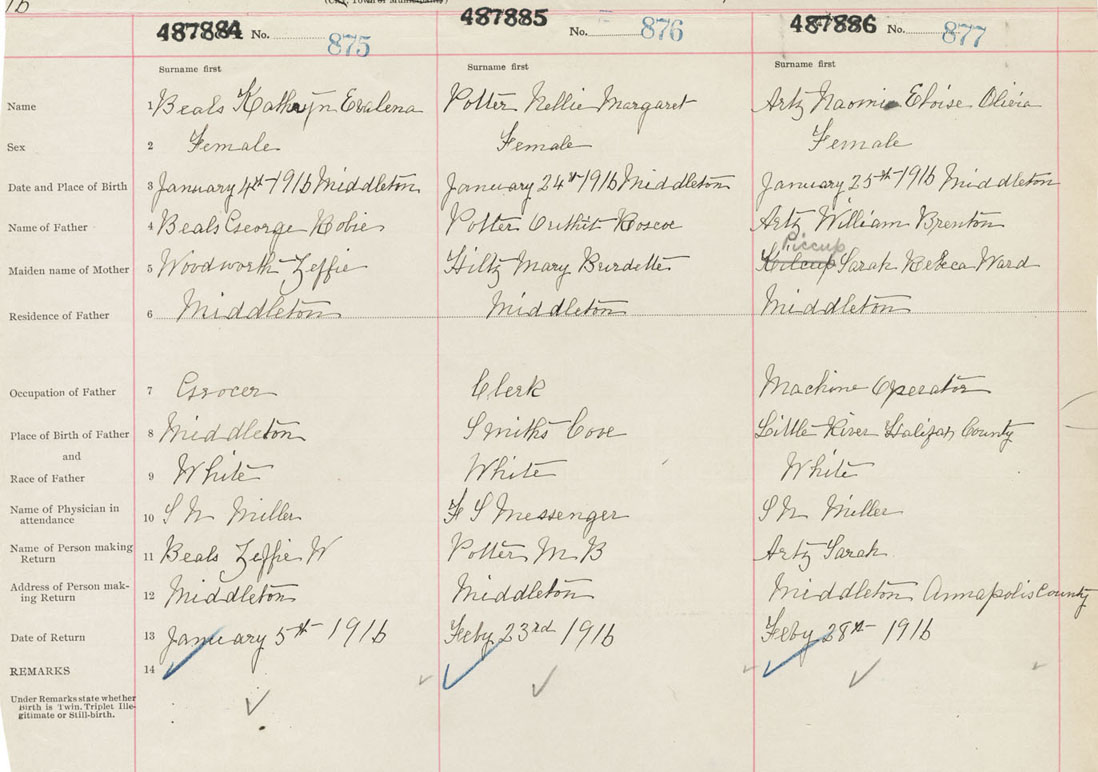 1b
(City, Town or Municipality)
487884 No. 875 487885 No. 876 487886 No. 877
Surname first Surname first Surname first
Name 1 Beals Kathryn Evalena Potter Nellie Margaret Artz Naomi Eloise Olivia
Sex 2 Female Female Female
Date and Place of Birth 3 January 4th 1916 Middleton January 24th 1916 Middleton January 25th 1916 Middleton
Name of Father 4 Beals George Robie Potter Outhit Roscoe Artz William Brenton
Piccup
Maiden name of Mother 5 Woodworth Zeffie Hiltz Mary Burdette Kilcup Sarah Rebeca Ward
Residence of Father 6 Middleton Middleton Middleton
Occupation of Father 7 Grocer Clerk Machine Operator
Place of Birth of Father 8 Middleton Smiths Cove Little River Halifax County
and
Race of Father 9 White White White
Name of Physician in
attendance 10 S N Miller F S Messenger S N Miller
Name of Person making
Return 11 Beals Zeffie W Potter M B Artz Sarah
Address of Person mak-
ing Return 12 Middleton Middleton Middleton Annapolis County
Date of Return 13 January 5th 1916 Feby 23rd 1916 Feby 28th 1916
REMARKS 14
Under Remarks state whether
Birth is Twin, Triplet Ille-
gitimate or Still-birth.